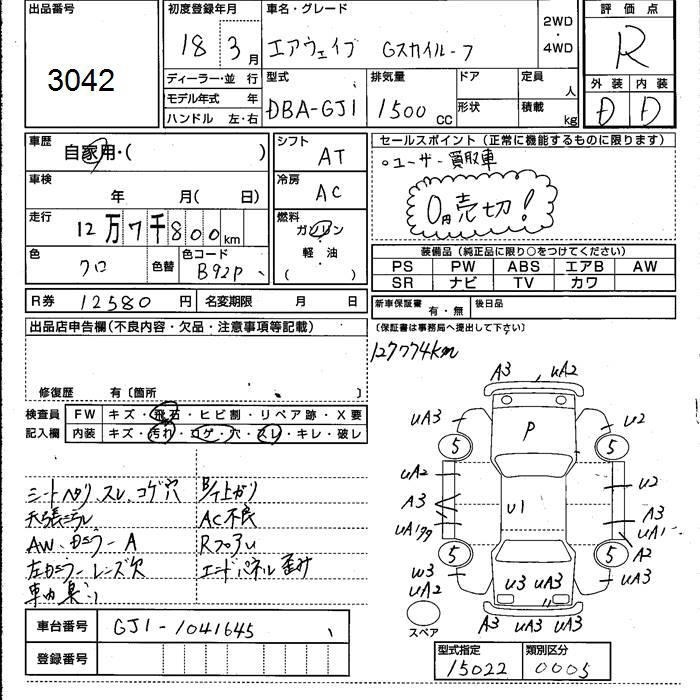 出品番号
3042
初度登録年月
18 3月
車名・グレード
エアウェイブ Gスカイルーフ
2WD
・
4WD
評価点
R
ディーラー・並 行
モデル年式 年
ハンドル 左・右
型式
DBA-GJ1
排気量
1500 cc
ドア
形状
定員 人
積載 kg
外装 内装
D D
車歴
自家用・( )
車検
年 月( 日)
走行
12万7千800km
色
クロ
色替
色コード
B92P
シフト
AT
冷房
AC
燃料
ガソリン
・
軽・油
( )
セールスポイント (正常に機能するものに限ります)
○ユーザー買取車
0円売切!
装備品 (純正品に限り○をつけてください)
PS PW ABS エアB AW
SR ナビ TV カワ
R券 12580 円
名変期限 月 日
新車保証書 有・無
後日品
(保証書は事務局へ提出して下さい)
出品店申告欄(不良内容・欠品・注意事項等記載)
修復歴 有〔箇所 〕
127774km
検査員
記入欄
FW キズ・飛石・ヒビ割・リペア跡・X要
内装 キズ・汚れ・コゲ・穴・スレ・キレ・破レ
シートヘタリ、スレ、コゲ穴
天張ミラレ
AW、カミラーA
左カミラーレンズ欠
車内臭い
B/T上がり
AC不良
Rフつい
エンドパネル歪み
A3 uA2
uA3 u2
5 P 5
uA2 u2
A3 u1 A3
uA1
A2
5 5
w3 u3 uA3 uA3
uA2
A3 uA3 uA3
スペア
車台番号
GJ1-1041645
登録番号
型式指定
15022
類別区分
0005